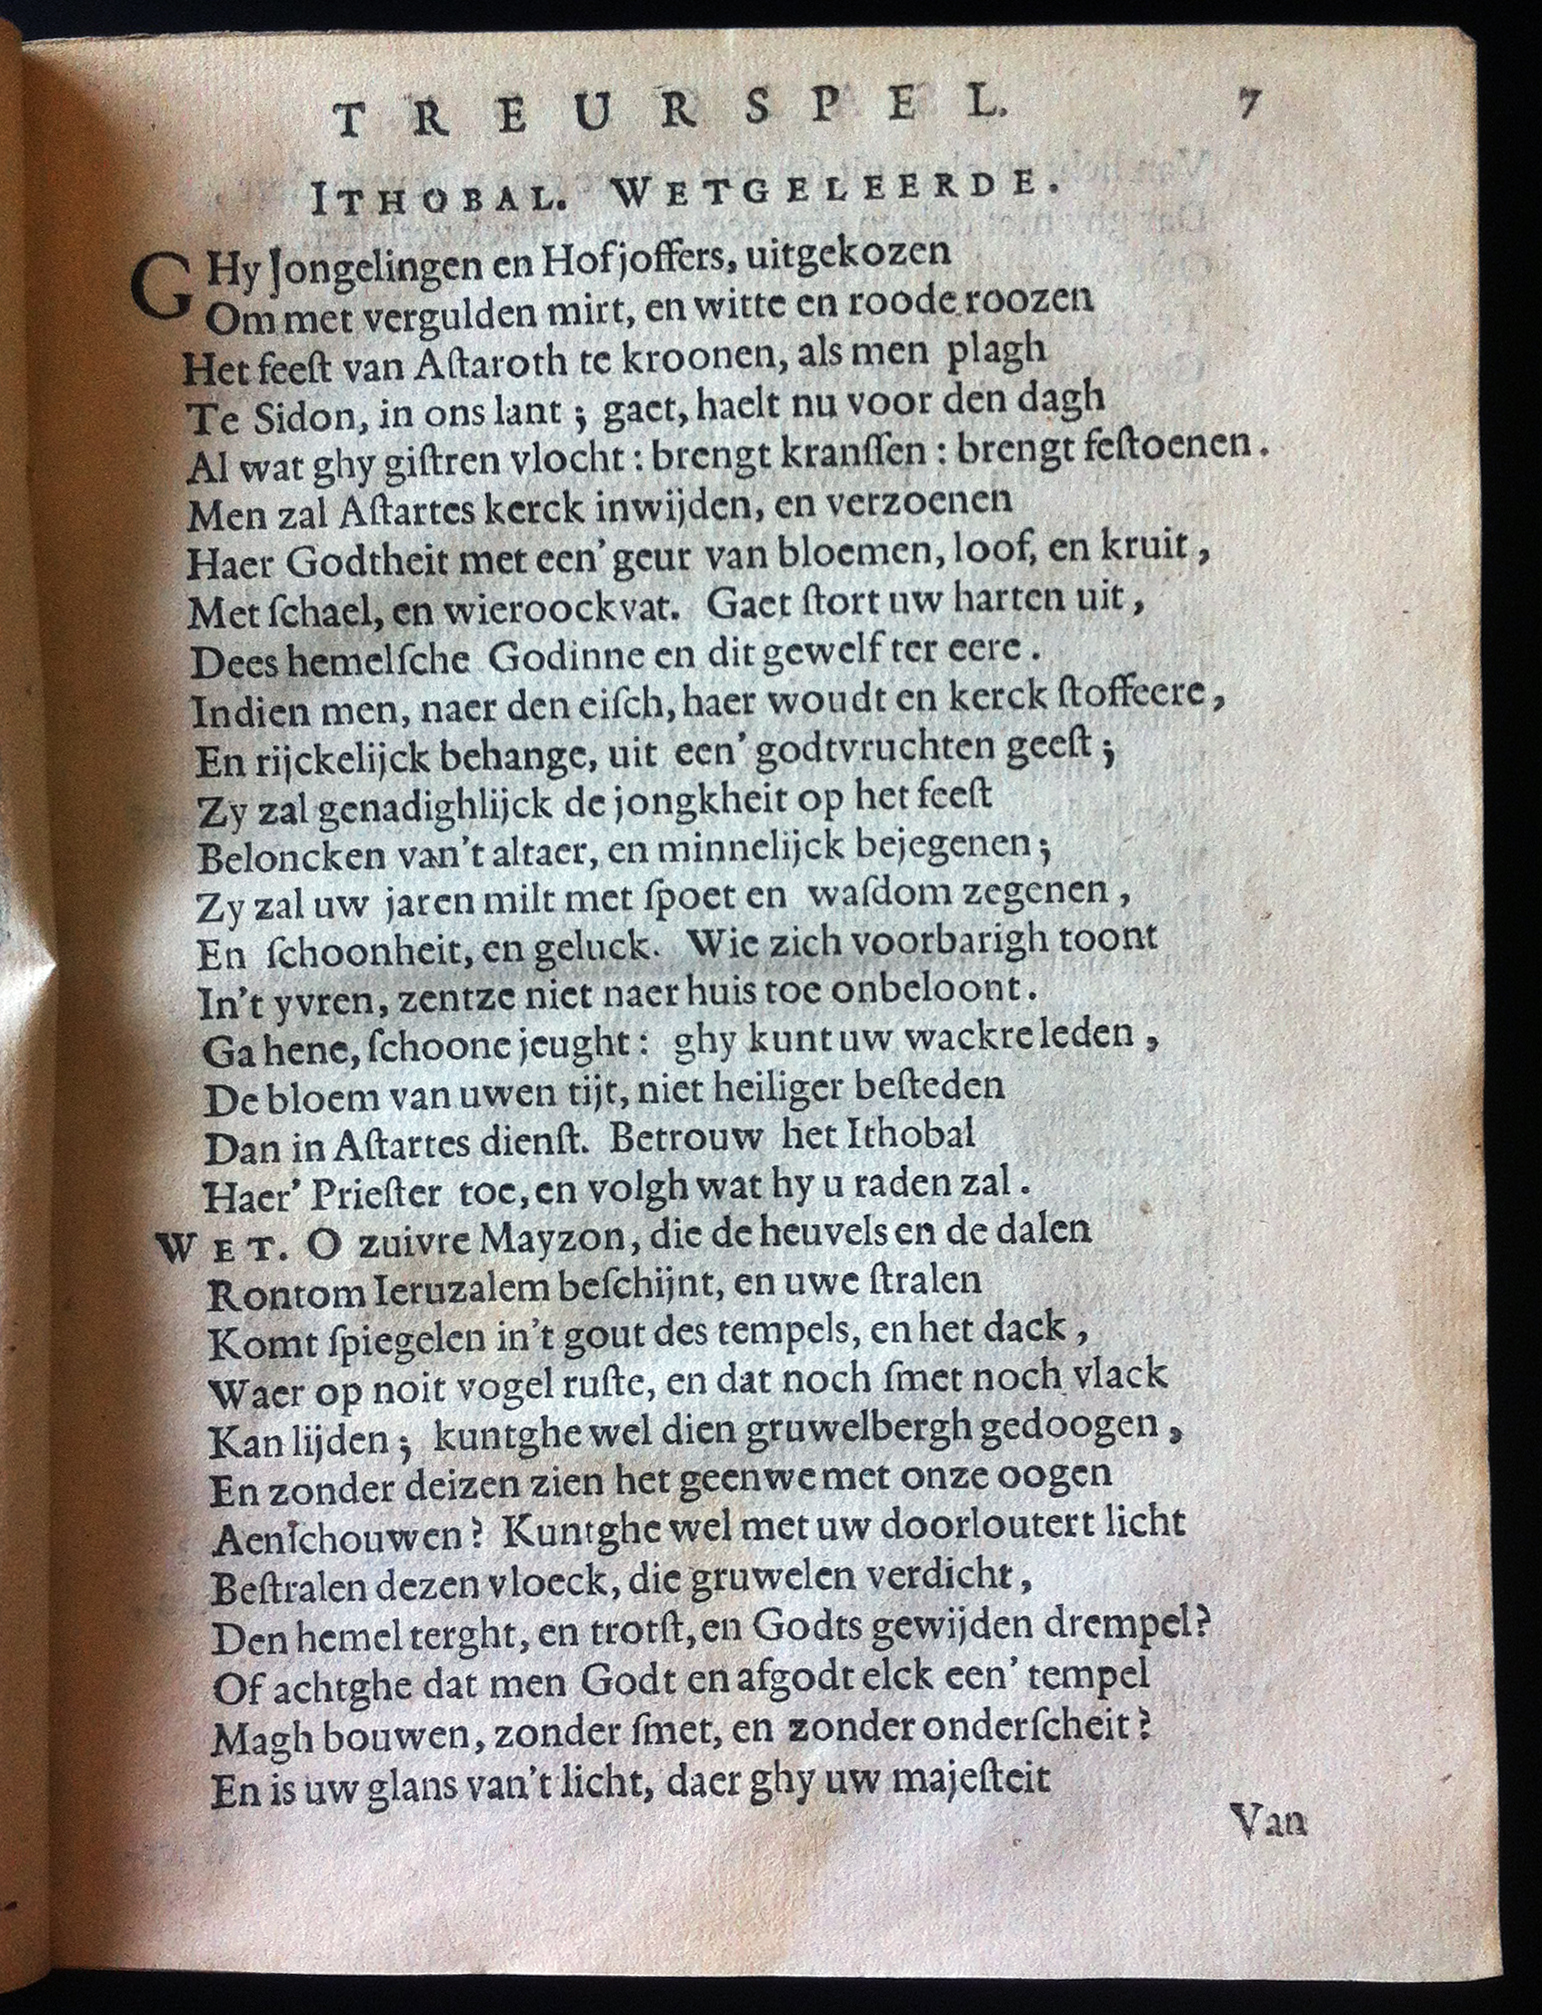 TREURSPEL. 7
ITHOBAL. WETGELEERDE.
GHy Jongelingen en Hofjoffers, uitgekozen
Om met vergulden mirt, en witte en roode roozen
Het feeſt van Aſtaroth te kroonen, als men plagh
Te Sidon, in ons lant; gaet, haelt nu voor den dagh
Al wat ghy giſtren vlocht: brengt kranſſen: brengt feſtoenen.
Men zal Aſtartes kerck inwijden, en verzoenen
Haer Godtheit met een' geur van bloemen, loof, en kruit,
Met ſchael, en wieroockvat. Gaet ſtort uw harten uit,
Dees hemelſche Godinne en dit gewelf ter eere.
Indien men, naer den eiſch, haer woudt en kerck ſtoffeere,
En rijckelijck behange, uit een' godtvruchten geeſt;
Zy zal genadighlijck de jongkheit op het feeſt
Beloncken van't altaer, en minnelijck bejegenen;
Zy zal uw jaren milt met ſpoet en waſdom zegenen,
En ſchoonheit, en geluck. Wie zich voorbarigh toont
In't yvren, zentze niet naer huis toe onbeloont.
Ga hene, ſchoone jeught: ghy kunt uw wackre leden,
De bloem van uwen tijt, niet heiliger beſteden
Dan in Aſtartes dienſt. Betrouw het Ithobal
Haer' Prieſter toe, en volgh wat hy u raden zal.
WET. O zuivre Mayzon, die de heuvels en de dalen
Rontom Ieruzalem beſchijnt, en uwe ſtralen
Komt ſpiegelen in't gout des tempels, en het dack,
Waer op noit vogel ruſte, en dat noch ſmet noch vlack
Kan lijden; kuntghe wel dien gruwelbergh gedoogen,
En zonder deizen zien het geen we met onze oogen
Aenſchouwen? Kuntghe wel met uw doorloutert licht
Beſtralen dezen vloeck, die gruwelen verdicht,
Den hemel terght, en trotſt, en Godts gewijden drempel?
Of achtghe dat men Godt en afgodt elck een' tempel
Magh bouwen, zonder ſmet, en zonder onderſcheit?
En is uw glans van't licht, daer ghy uw majeſteit
Van